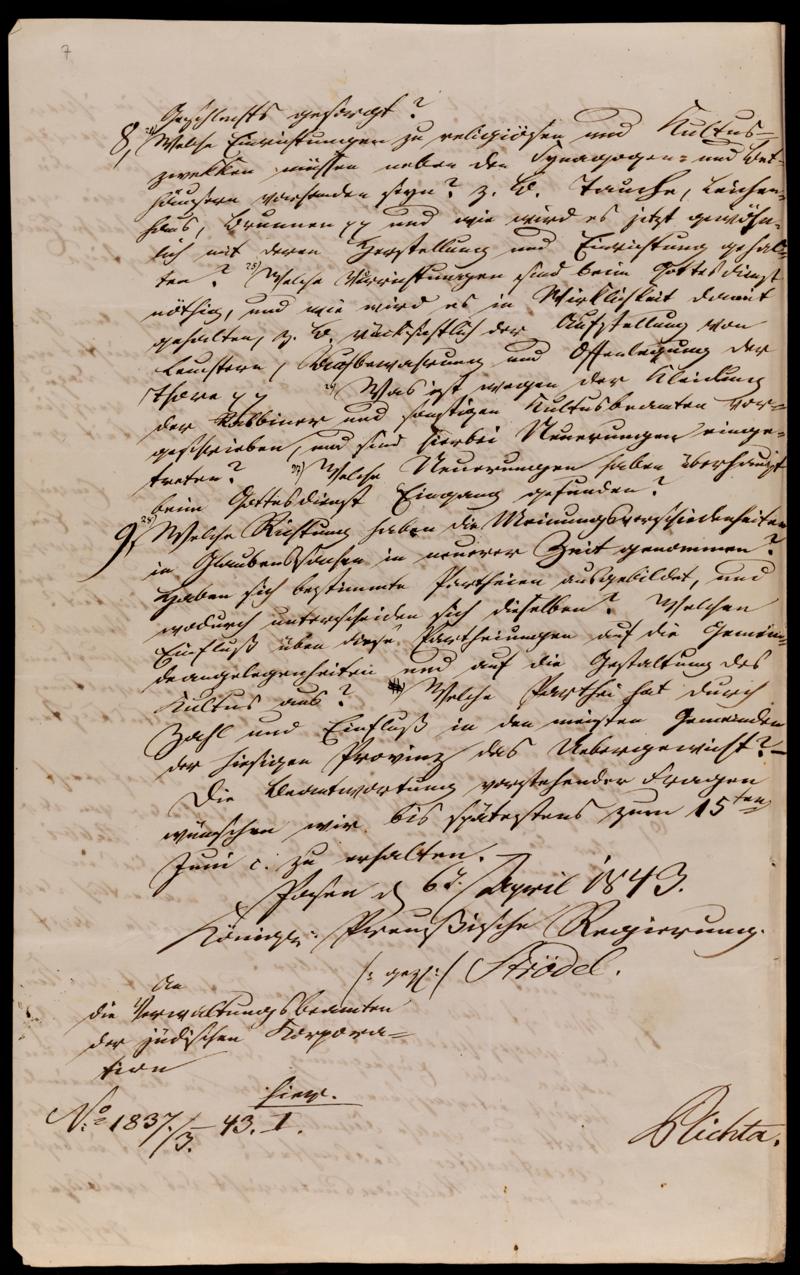 7
Geschlechts gesorgt?
8, 24) Welche Einrichtungen zu religiösen und Kultus-
zwekken müssen neben den Synagogen- und Bet-
häusern vorhanden seyn? z. B. Tauche, Leichen-
haus, Brunnen pp und wie wird es jetzt gewöhn-
lich mit deren Herstellung und Einrichtung gehal-
ten? 25) Welche Vorrichtungen sind beim Gottesdienst
nöthig, und wie wird es in Wirklichkeit damit
gehalten, z. B. rücksichtlich der Aufstellung von
Leuchtern, Aufbewahrung und Offenlegung der
Thora pp 26) Was ist wegen der Kleidung
der Rabbiner und sonstigen Kultusbeamten vor-
geschrieben, und sind hierbei Neuerungen einge-
treten? 27) Welche Neuerungen haben überhaupt
beim Gottesdienst Eingang gefunden?
9, 28) Welche Richtung haben die Meinungsverschiedenheiten
in Glaubenssachen in neuerer Zeit genommen?
Haben sich bestimmte Partheien ausgebildet, und
wodurch unterscheiden sich dieselben? Welchen
Einfluß üben diese Partheiungen auf die Gemein-
deangelegenheiten und auf die Gestaltung des
Kultus aus? Welche Parthei hat durch
Zahl und Einfluß in den meisten Gemeinden
der hiesigen Provinz das Uebergewicht? –
Die Beantwortung vorstehender Fragen
wünschen wir bis spätestens zum 15ten
Juni c. zu erhalten.
Posen d 6t. April 1843.
Königl: Preußische Regierung.
/: gez: / Strödel.
An
die Verwaltungsbeamten
der jüdischen Korpora-
tion
hier.
No 1837./3. 43. I.
Plichta.